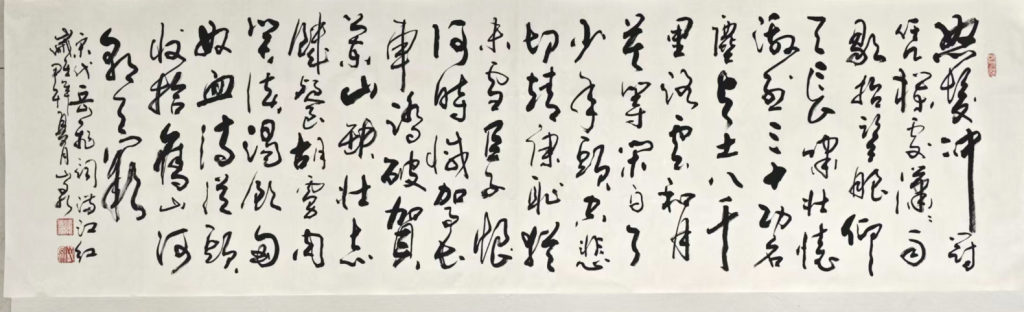 怒髮冲冠
凭欄處瀟〻雨
歇抬望眼仰
天長嘯壯懷
激烈三十功名
塵与土八千
里路雲和月
莫等闲白了
少年頭空悲
切靖康恥猶
未雪臣子恨
何時滅駕長
車踏破賀
蘭山缺壯志
饑餐胡虜肉
笑談渴飲匈
奴血待從頭
收拾舊山河
朝天闕
宋代岳飛詞滿江紅
歲年夏月